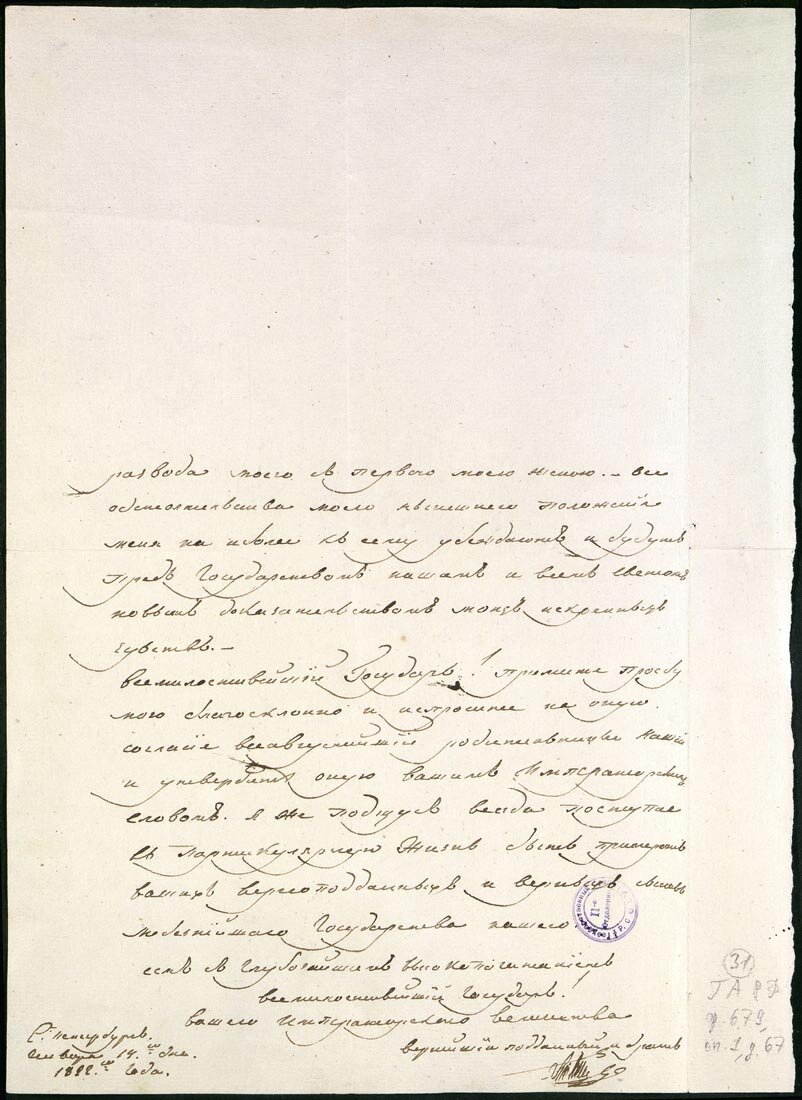 развода моего съ первою моею женою. – все
обстоятельства моего нынешнего положенія
меня на иболее къ сему убеждаютъ и будутъ
предъ Государствомъ нашимъ и всемъ светомъ
новымъ доказательствомъ моихъ искреннихъ
чувствъ. –
Всемилостивейшій Государь! примите прозбу
мою благосклонно и испросите на оную
согласіе всеавгустейшій родительницы нашей
и утвердить оную вашимъ Императорскимъ
словомъ. Я же потщусь всегда поступая
въ партикулярную жизнь быть примеромъ
вашихъ верноподданныхъ и верныхъ сыновъ
любезнейшаго Государства нашего
есмь съ глубочайшимъ высокопочитаніемъ
всемилостивейшій Государь!
вашего Императорскаго величества
вернейшій подданный и братъ
С: Петербургъ.
Генваря 14.го дня.
1822.го Года.
II-е
31
ГА РФ
ф. 679,
оп. 1, д. 67